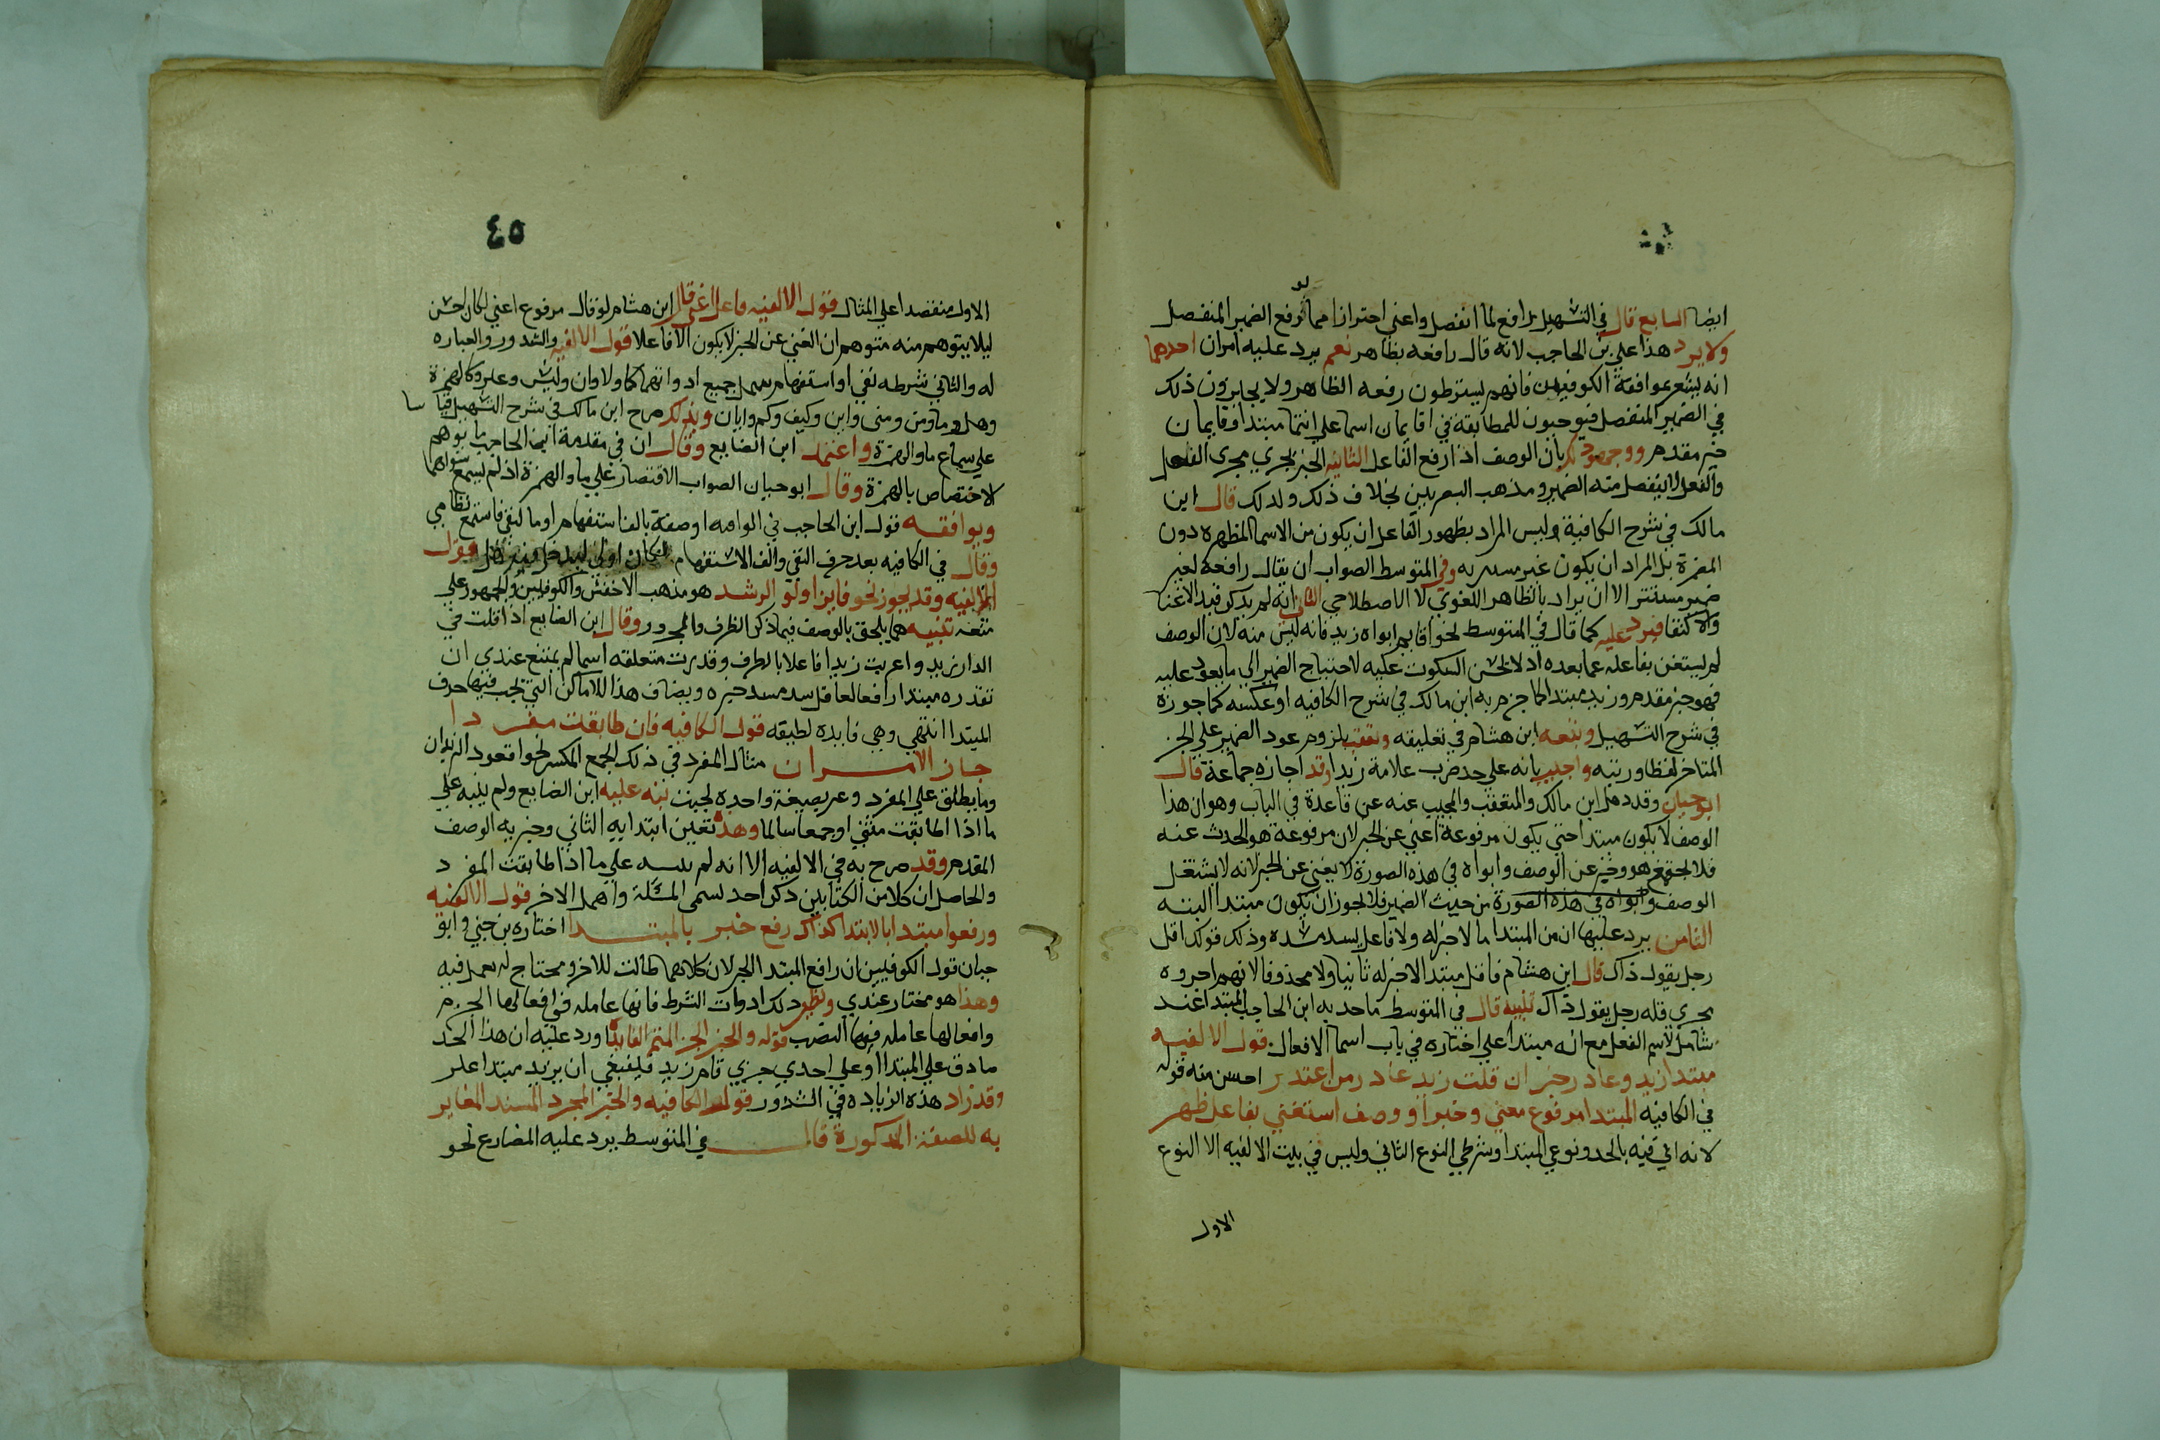 ايضا السابع قال في التسهيل رافع لما انفصل واغني احترازا مما لو رفع الضمير المنفصل
ولا يرد هذا علي بن الحاجب لانه قال رافعه بظاهر نعم يرد عليه امران احدهما
انه يشعر بموافقة الكوفيين فانهم يشترطون رفعه الظاهر ولا يجيزون ذلك
في الضمير المنفصل فيوجبون للمطابقة في اقايمان اسما علي انتما مبتدا وقايمان
خبر مقدم بان الوصف اذا رفع الفاعل الثانيه الخبر يجري مجري الفعل
والفعل لا ينفصل منه الضمير ومذهب البصريين بخلاف ذلك ولذلك قال ابن
مالك في شرح الكافية وليس المراد بظهور الفاعل ان يكون من الاسما المظهره دون
المضمرة بل المراد ان يكون غير مستتر وفي المتوسط الصواب ان يقال رافعة لغير
ضمير مستتر الا ان يراد بالظاهر اللغوي لا الاصطلاحي الثاني انه لم يذكر قيد الاغنا
والاكتفا فيرد عليه كما قال في المتوسط نحو اقايم ابواه زيد فانه ليس منه لان الوصف
لم يستغن بفاعله عما بعده اذ لا يحسن السكوت عليه لاحتياج الضمير الي ما يعود عليه
فهو خبر مقدم وزيد مبتدا كما جزم به ابن مالك في شرح الكافيه او عكسه كما جوزه
في شرح التسهيل وتبعه ابن هشام في تعليقه وتعقب بلزوم عود الضمير علي الخبر
المتاخر لفظا ورتبه واجيب بانه علي حد ضرب علامة زيدا وقد اجازه جماعة قال
ابو حيان وقد ذهل ابن مالك والمتعقب والمجيب عنه عن قاعدة في الباب وهو ان هذا
الوصف لا يكون مبتدا حتي يكون مرفوعة اغني عن الخبر لان مرفوعة هو المحدث عنه
فلا يجتمع هو وخبر عن الوصف وابواه في هذه الصورة لا يغني عن الخبر لانه لا يشتغل
الوصف وابواه في هذه الصورة من حيث الضمير فلا يجوز ان يكون مبتدا البته
الثامن يرد عليها ان من المبتدا ما لا خبر له ولا فاعل يسد مسده وذلك قولك اقل
رجل يقول ذاك قال ابن هشام فاقل مبتدا لا خبر له ثابتا ولا محذوفا لانهم اجروه
مجري قل رجل يقول ذاك تنبيه قال في المتوسط ما حد به ابن الحاجب المبتدا عند
شامل لاسم الفعل مع انه مبتدا علي اختاره في باب اسما الافعال قول الالفيه
مبتدا زيد وعاذر خبر ان قلت زيد عاذر من اعتذر احسن منه قوله
في الكافيه المبتدا مرفوع معني وخبرا او وصف استغني بفاعل ظهر
لانه اتي فيه بالحد ونوعي المبتدا وشرطي النوع الثاني وليس في بيت الالفيه الا النوع
الاول
٤٥
الاول منقصدا علي المثال قول الالفيه فاعل اغني قال ابن هشام لو قال مرفوع اغني لكان احسن
ليلا يتوهم منه متوهم ان المغني عن الخبر لا يكون الا فاعلا قول الالفيه والشذور والعباره
له والثاني شرطه نفي او استفهام يشمل جميع ادواتهما كما ولا وان وليس وغير وكالهمزة
وهل وما ومن ومتي واين وكيف وكم وايان وبذلك صرح ابن مالك في شرح التسهيل قياسا
علي سماع ما والهمزة واعتمد ابن الضايع وقال ان في مقدمة ابن الحاجب ما يوهم
الاختصاص بالهمزة وقال ابو حيان الصواب الاقتصار علي ما والهمزة اذ لم يسمع سواهما
ويوافقه قول ابن الحاجب في الوافيه او صفة بالف استفهام او ما لنفي فاستمع نظامي
وقال في الكافيه بعد حرف النفي والف الاستفهام لكان اولي ليدخل فيه هل قول
الالفيه وقد يجوز نحو فايز اولو الرشد هو مذهب الاخفش والكوفيين والجمهور علي
منعه تنبيه هما يلحق بالوصف فيما ذكر الظرف والمجرور وقال ابن الضايع اذا قلت في
الدار زيد واعربت زيدا فاعلا بالظرف وقدرت متعلقه اسما لم يمتنع عندي ان
تقدره مبتدا رافعا لفاعل سد مسد خبره ويضاف هذا للاماكن التي يجب فيها حذف
المبتدا انتهي وهي فايده لطيفه قول الكافيه فان طابقت مفردا
جاز الامران مثال المفرد في ذلك الجمع المكسر نحو اقعود الزيدان
وما يطلق علي المفرد وغيره بصيغة واحده كجنب نبه عليه ابن الضايع ولم ينبه علي
ما اذا طابقت مثني او جمعا سالما وهذا تعين ابتدايه الثاني وخبريه الوصف
المقدم وقد صرح به في الالفيه الا انه لم ينبه علي ما اذا طابقت المفرد
والحاصل ان كلا من الكتابين ذكر احد قسمي المسئلة واهمل الاخر قول الالفيه
ورفعوا مبتدا بالابتدا كذاك رفع خبر بالمبتدا اختاره بن جني وابو
حيان قول الكوفيين ان رافع المبتدا الخبر لان كلاهما طالب للاخر ومحتاج له يعمل فيه
وهذا هو مختار عندي ونظير ذلك ادوات الشرط فانها عامله في افعالها الجزم
وافعالها عامله فيها النصب قوله والخبر الجز المتم الفايدة ورد عليه ان هذا الحد
صادق علي المبتدا او علي احدي جزي قام زيد فلينبغي ان يزيد مبتدا علي
وقد زاد هذه الزياده في الشذور قول الكافيه والخبر المجرد المسند المغاير
به للصفة المذكورة قال في المتوسط يرد عليه المضارع نحو